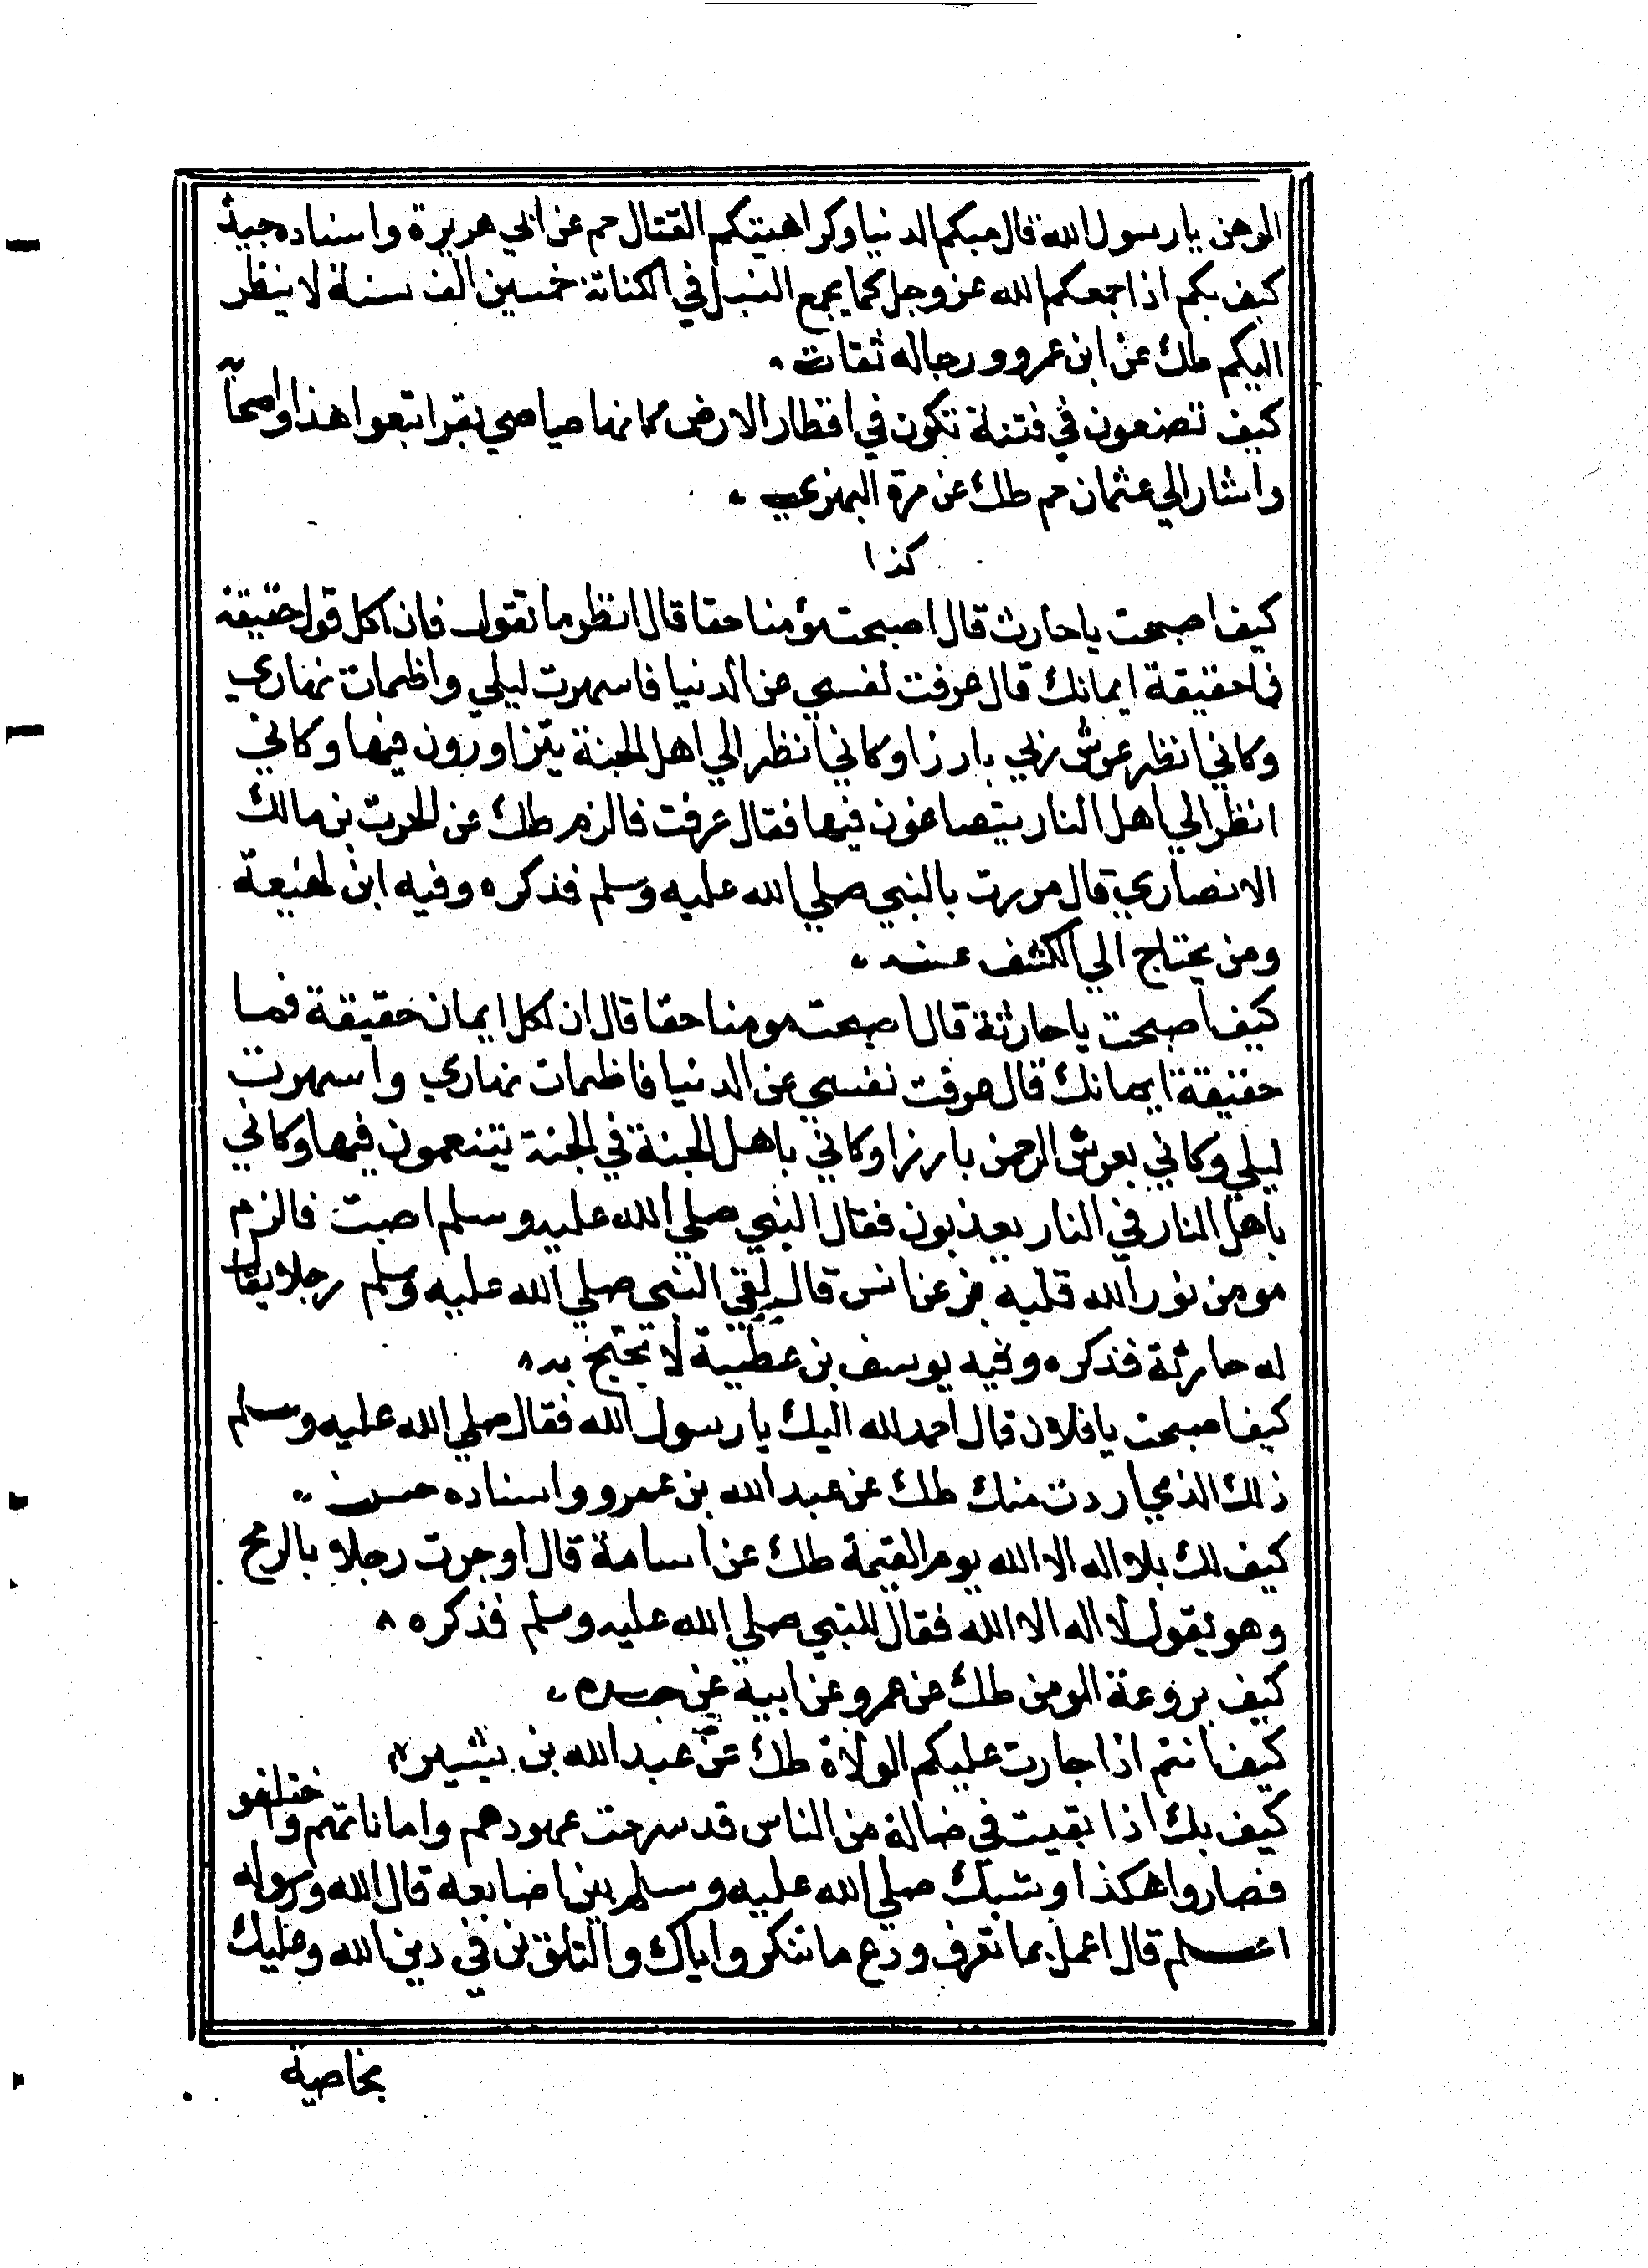 الوهن يا رسول الله قال حبكم الدنيا وكراهيتكم القتال حم عن ابي هريرة واسناده جيد
كيف بكم اذا جمعكم الله عز وجل كما يجمع النبل في الكنانة خمسين الف سنة لا ينظر
اليكم طك عن ابن عمرو ورجاله ثقات
كيف تصنعون في فتنة تكون في اقطار الارض كانها صياصي بقر اتبعوا هذا واصحابه
واشار الي عثمان حم طك عن مرة البهزي
كذا
كيف اصبحت يا حارث قال اصبحت مؤمنا حقا قال انظر ما تقول فان لكل قول حقيقة
فما حقيقة ايمانك قال عزفت نفسي عن الدنيا فاسهرت ليلي واظمات نهاري
وكاني انظر عرش ربي بارزا وكاني انظر الي اهل الجنة يتزاورون فيها وكاني
انظر الي اهل النار يتصاغون فيها فقال عرفت فالزم طك عن الحرث بن مالك
الانصاري قال مررت بالنبي صلي الله عليه وسلم فذكره وفيه ابن لهيعة
ومن يحتاج الي الكشف عنه
كيف اصبحت يا حارثة قال اصبحت مومنا حقا قال ان لكل ايمان حقيقة فما
حقيقة ايمانك قال عزفت نفسي عن الدنيا فاظمات نهاري واسهرت
ليلي وكاني بعرش الرحمن بارزا وكاني باهل الجنة في الجنة يتنعمون فيها وكاني
باهل النار في النار يعذبون فقال النبي صلي الله عليه وسلم اصبت فالزم
مومن نور الله قلبه بز عن انس قال لقي النبي صلي الله عليه وسلم رجلا يقال
له حارثة فذكره وفيه يوسف بن عطية لا يحتج به
كيف اصبحت يا فلان قال احمد لله اليك يا رسول الله فقال صلي الله عليه وسلم
ذلك الذي اردت منك طك عن عبد الله بن عمرو واسناده حسن
كيف لك بلا اله الا الله يوم القيمة طك عن اسامة قال اوجرت رجلا بالرمح
وهو يقول لا اله الا الله فقال للنبي صلي الله عليه وسلم فذكره
كيف بروعة المومن طك عن عمرو عن ابيه عن جده
كيف انتم اذا جارت عليكم الولاة طك عن عبد الله بن بشير
كيف بك اذا بقيت في ضالة من الناس قد سرحت عهودهم واماناتهم واختلفو
فصاروا هكذا وشبك صلي الله عليه وسلم بين اضابعه قال الله ورسوله
اعلم قال اعمل بما تعرف ودع ما تنكر واياك والتلون في دين الله وعليك
بخاصية